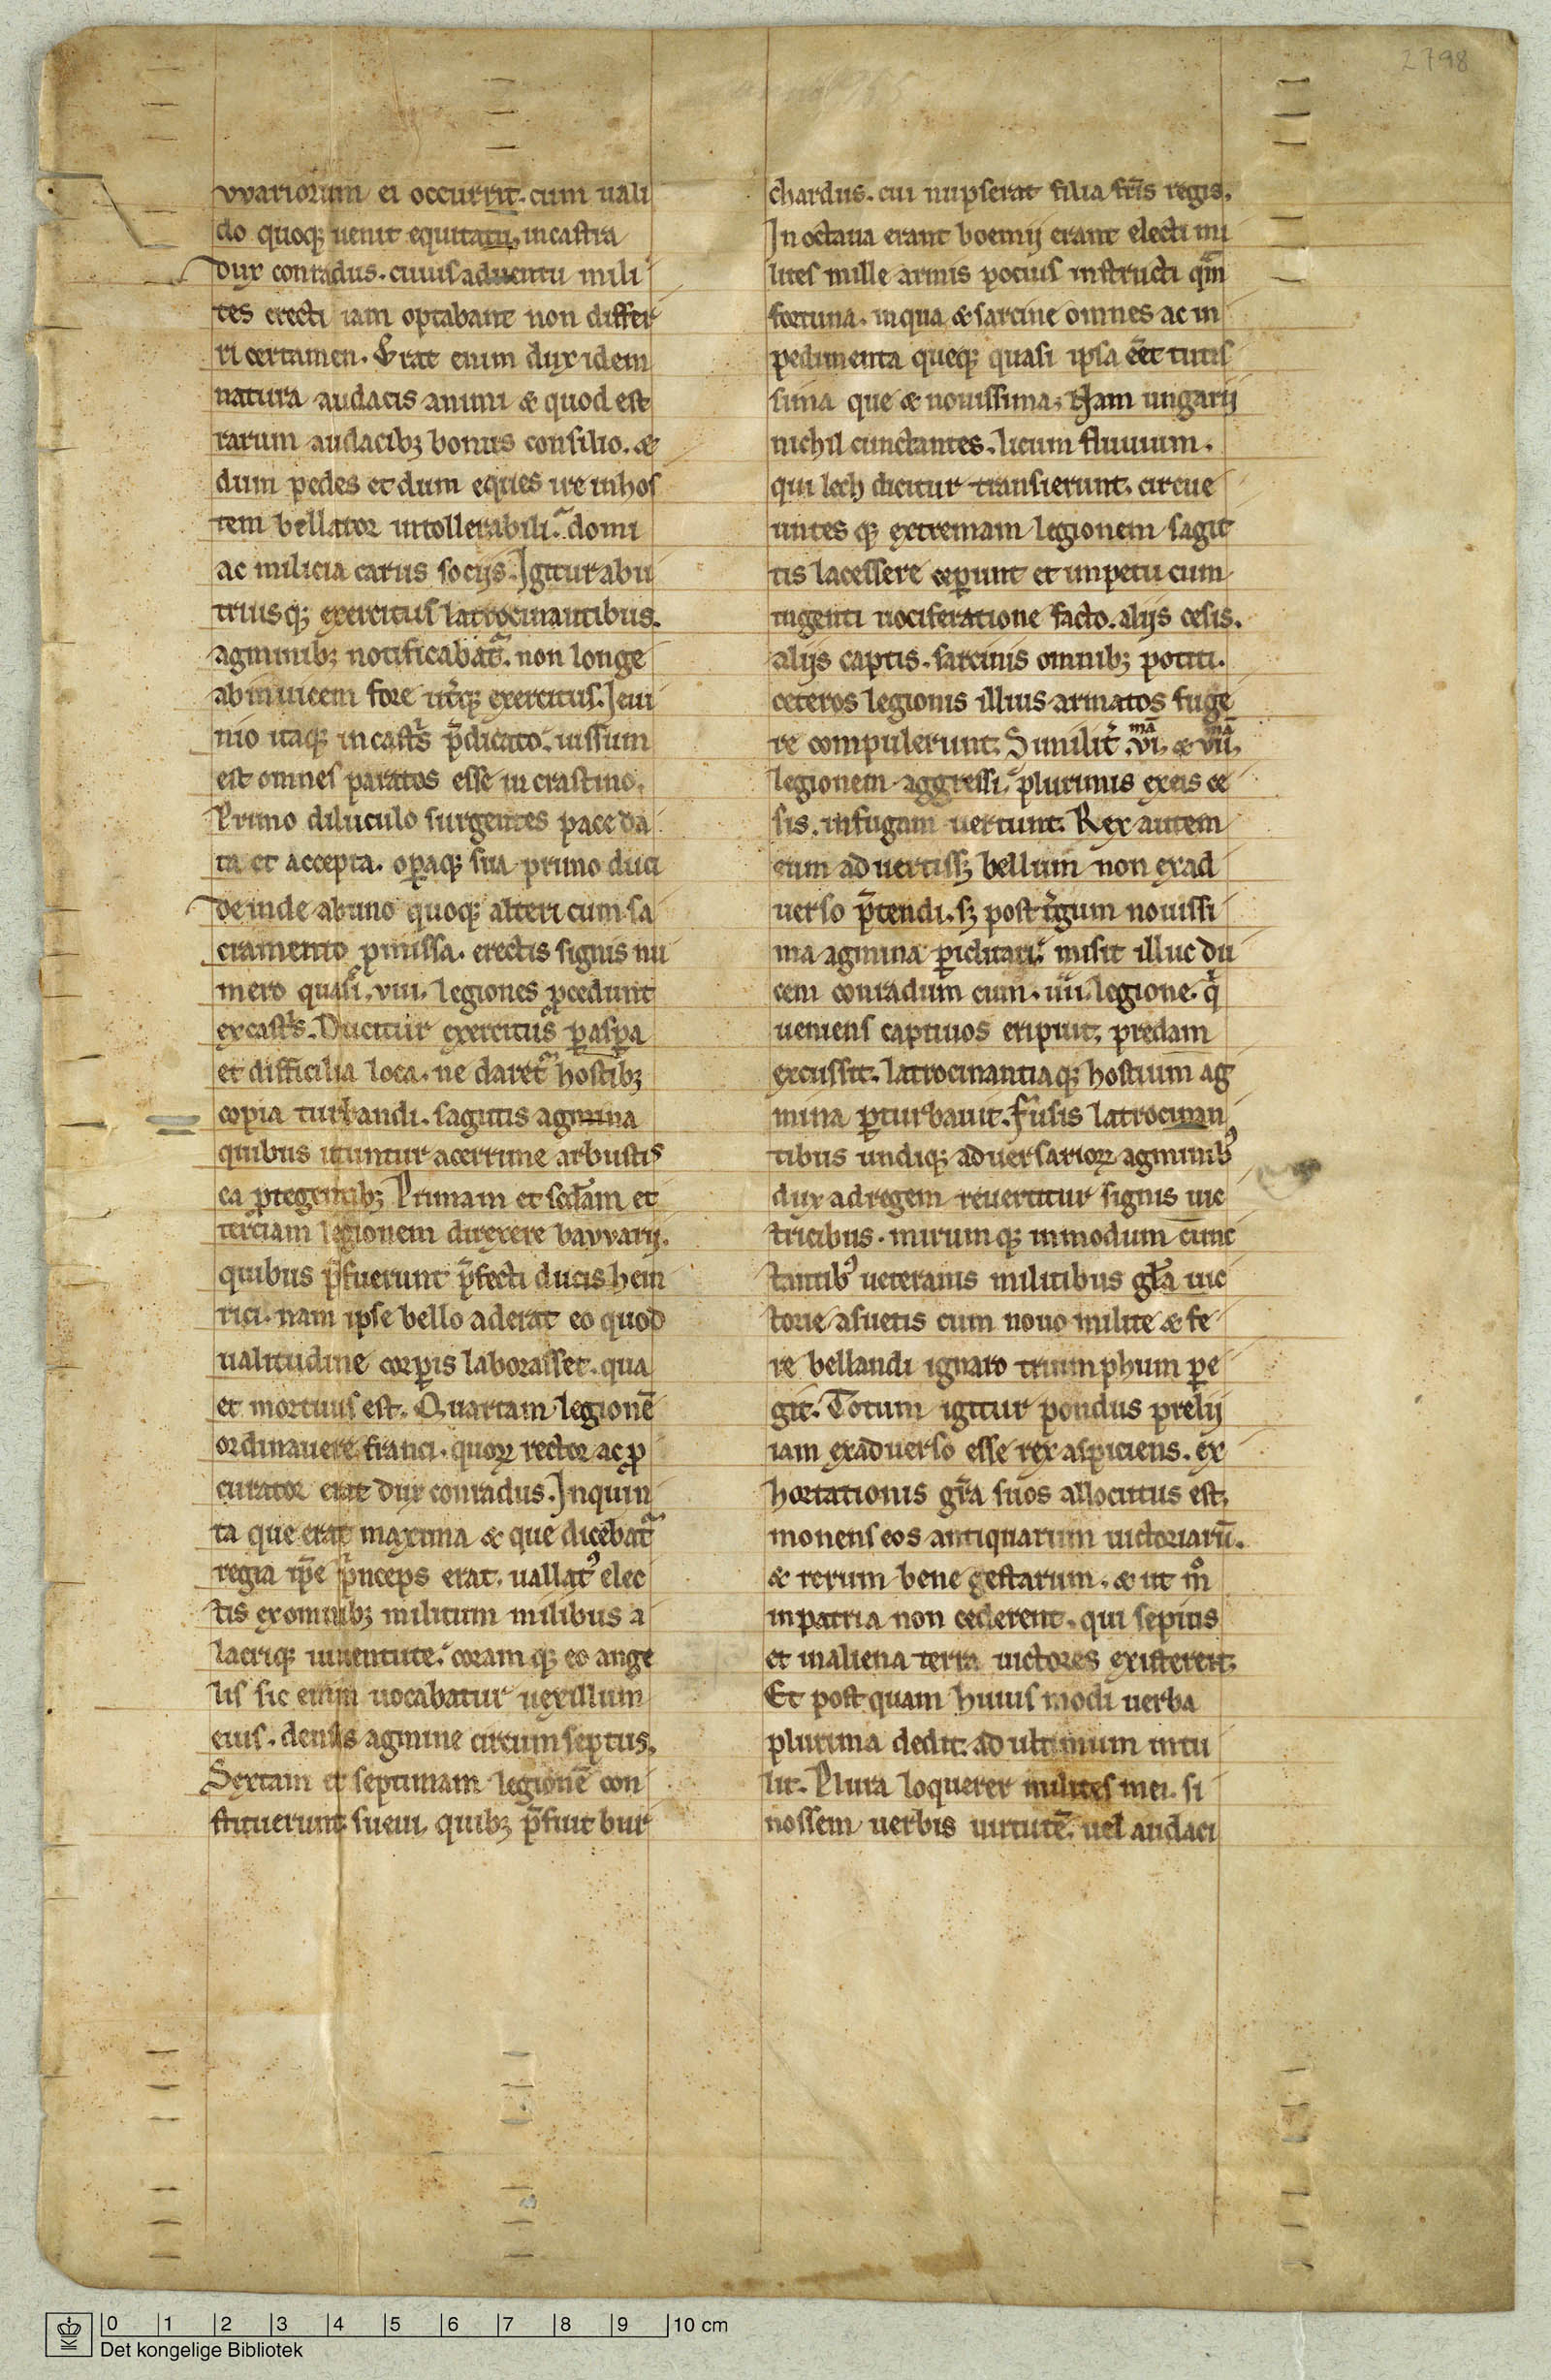 2798
vvariorum ei occurrit. cum uali
do quoq; uenit equitatu, incastra
dux conradus. cuius aduentu mili
tes erecti iam optabant non differ
ri certamen. Erat enim dux idem
natura audacis animi & quod est
rarum audacib; bonus consilio. &
dum pedes et dum eques ire inhos
tem bellator intollerabili᷑. domi
ac milicia carus socijs. Igitur abu
triusq; exercitus latrocinantibus.
agminib; notificabat᷑. non longe
abinuicem fore ut͛q; exercitus. Ieiu
nio itaq; incast͛s p̄dicato. iussum
est omnes paratos esse in crastino.
Primo diluculo surgentes pace da
ta et accepta. oꝑaq; sua primo duci
deinde abuno quoq; alteri cum sa
cramento ꝓmissa. erectis signis nu
mero quasi. viii. legiones ꝓcedunt
excast͛s. Ducitur exercitus ꝑ asꝑa
et difficilia loca. ne daret᷑ hostib;
copia turbandi. sagittis agmina
quibus utuntur acerrime arbustis
ea ꝓtegentib; Primam et scd̄am et
terciam legionem direxere bavvarij.
quibus p̄fuerunt p̄fecti ducis hein
rici. nam ipse bello aderat eo quod
ualitudine corꝑis laborasset. qua
et mortuus est. Quartam legionē
ordinauere franci. quoꝝ rector ac ꝓ
curator erat dux conradus. Inquin
ta que erat maxima & que dicebat᷑
regia ip̄e pⁱnceps erat. uallatꝰ elec
tis exomnib; militum milibus a
lacriq; iuuentute. coram q; eo ange
lis sic enim uocabatur uexillum
eius. densis agmine circum septus.
Sextam et septimam legionē con
stituerunt sueui. quib; p̄fuit bur
chardus. cui nupserat filia fr̄is regis.
In octaua erant boemij erant electi mi
lites mille armis pocius instructi qm̄
fortuna. inqua & sarcine omnes ac in
pedimenta queq; quasi ipsa eēt tutis
sima que & nouissima. Nam ungarij
nichil cunctantes. licum fluuium.
qui lech dicitur transierunt. circue
untes q; extremam legionem sagit
tis lacessere ceꝑunt et impetu cum
ingenti uociferatione facto. alijs cesis.
alijs captis. sarcinis omnib; potiti.
ceteros legionis illius armatos fuge
re compulerunt. Similit͛ .vi.mā & vii.mā
legionem aggressi. plurimis exeis ce
sis. infugam uertunt. Rex autem
cum aduertiss; bellum non exad
uerso p̄tendi. s; post t͛gum nouissi
ma agmina ꝑiclitari. misit illuc du
cem conradum cum. iiii. legione. qⁱ
ueniens captiuos eripuit. predam
excussit. latrocinantiaq; hostium ag
mina ꝑturbauit. Fusis latrocinan
tibus undiq; aduersarioꝝ agminibꝰ
dux adregem reuertitur signis uic
tricibus. mirumq; inmodum cunc
tantibꝰ ueteranis militibus gl̄a uic
torie asuetis cum nouo milite & fe
re bellandi ignaro triumphum ꝑe
git. Totum igitur pondus prelij
iam exaduerso esse rex aspiciens. ex
hortationis gr̄a suos allocutus est.
monens eos antiquarum uictoriarū.
& rerum bene gestarum. & ut m̊
inpatria non cederent. qui sepius
et inaliena terra uictores existerent.
Et post quam huius modi uerba
plurima dedit. ad ultimum intu
lit. Plura loquerer milites mei. si
nossem uerbis uirtutē. uel audaci
0 1 2 3 4 5 6 7 8 9 10 cm
Det kongelige Bibliotek